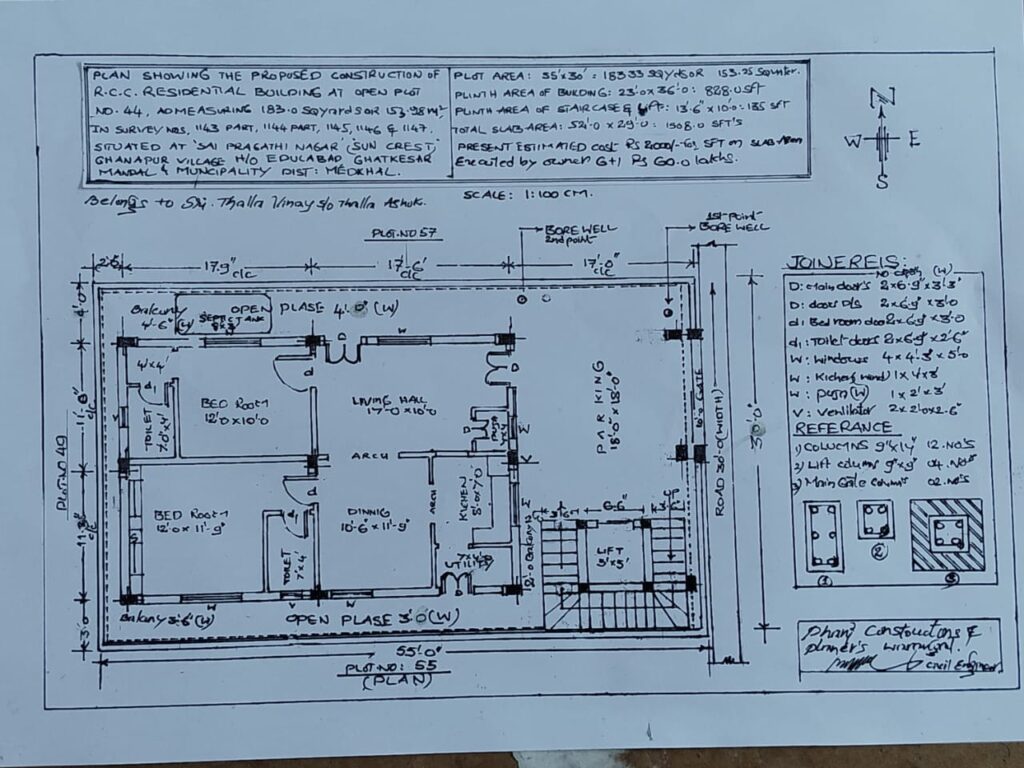 PLAN SHOWING THE PROPOSED CONSTRUCTION OF
R.C.C. RESIDENTIAL BUILDING AT OPEN PLOT
NO. 44, ADMEASURING 183.0 SQYARDS OR
IN SURVEY NOS. 1143 PART, 1144 PART, 1145, 1146 & 1147,
SITUATED AT 'SAI PRAGATHI NAGAR (SUN CREST),
GHANAPUR VILLAGE H/O EDULABAD GHATKESAR
MANDAL & MUNCIPALITY DIST: MEDKHAL.
PLOT AREA: 55'x30' = 183.33 SQYDS OR 153.25 SQ
PLINTH AREA OF BUILDING: 23'.0 x 36'.0 : 828.0 SFT
PLINTH AREA OF STAIRCASE & Lift: 13'.6" x 10'.0 : 135 SFT
TOTAL SLAB AREA: 52'.0 x 29'.0 : 1508.0 SFT'S
PRESENT ESTIMATED COST Rs SFT ON SLAB
by owner G+1 Rs 60.0 lakhs.
SCALE: 1:100 CM.
Belongs to Sri. Thalla Vinay s/o Thalla Ashok.
N
W
E
S
PLOT.NO 57
BORE WELL
2nd point
1st point
BORE WELL
2'.6"
17'.9"
c/c
17'.6'
c/c
17'.0"
c/c
4'.0"
11'.8"
c/c
11'.8"
c/c
3'.0"
PLOT.NO 49
Balcony
4'-6" (W)
SEPTIC TANK
OPEN PLASE 4'.0" (W)
W
D
4'x4'
d
TOILET
7'.0x4'
BED ROOM
12'.0 x 10'.0
LIVING HALL
17'-0 x 10'.0
D
ARCH
BED ROOM
12'.0 x 11'-9"
TOILET
7'x4'
DINNIG
10'-6" x 11'-9"
ARCH
KICHEN
8'.0x7'.0
UTILITY
PARKING
18'.0" x 18'.0"
6'-6"
LIFT
5'x5'
GATE
ROAD 30'.0 (WIDTH)
30'.0"
Balcony 3'.6" (W)
OPEN PLASE 3'.0 (W)
55'.0"
PLOT.NO: 55
(PLAN)
JOINEREIS:
D: main door's 2x6'.9"x3'.3'
D: doors D/s 2x6'.9"x3'.0
d: Bed room door 2x6.9"x3'.0
d1: Toilet doors 2x6'.9"x2'.6"
W: windows 4x4'.3"x5'.0
W: Kichen wind 1x4x3'
W: (W) 1x2'x3'
V: ventilator 2x2'.0x2'.6"
REFERANCE
1) COLUMNS 9"x14" 12.NO'S
2) Lift column 9"x9" 04.NO'S
3) Main Gate columns 02.NO'S
1
2
3
Phani Constructions &
planner's
civil Engineer